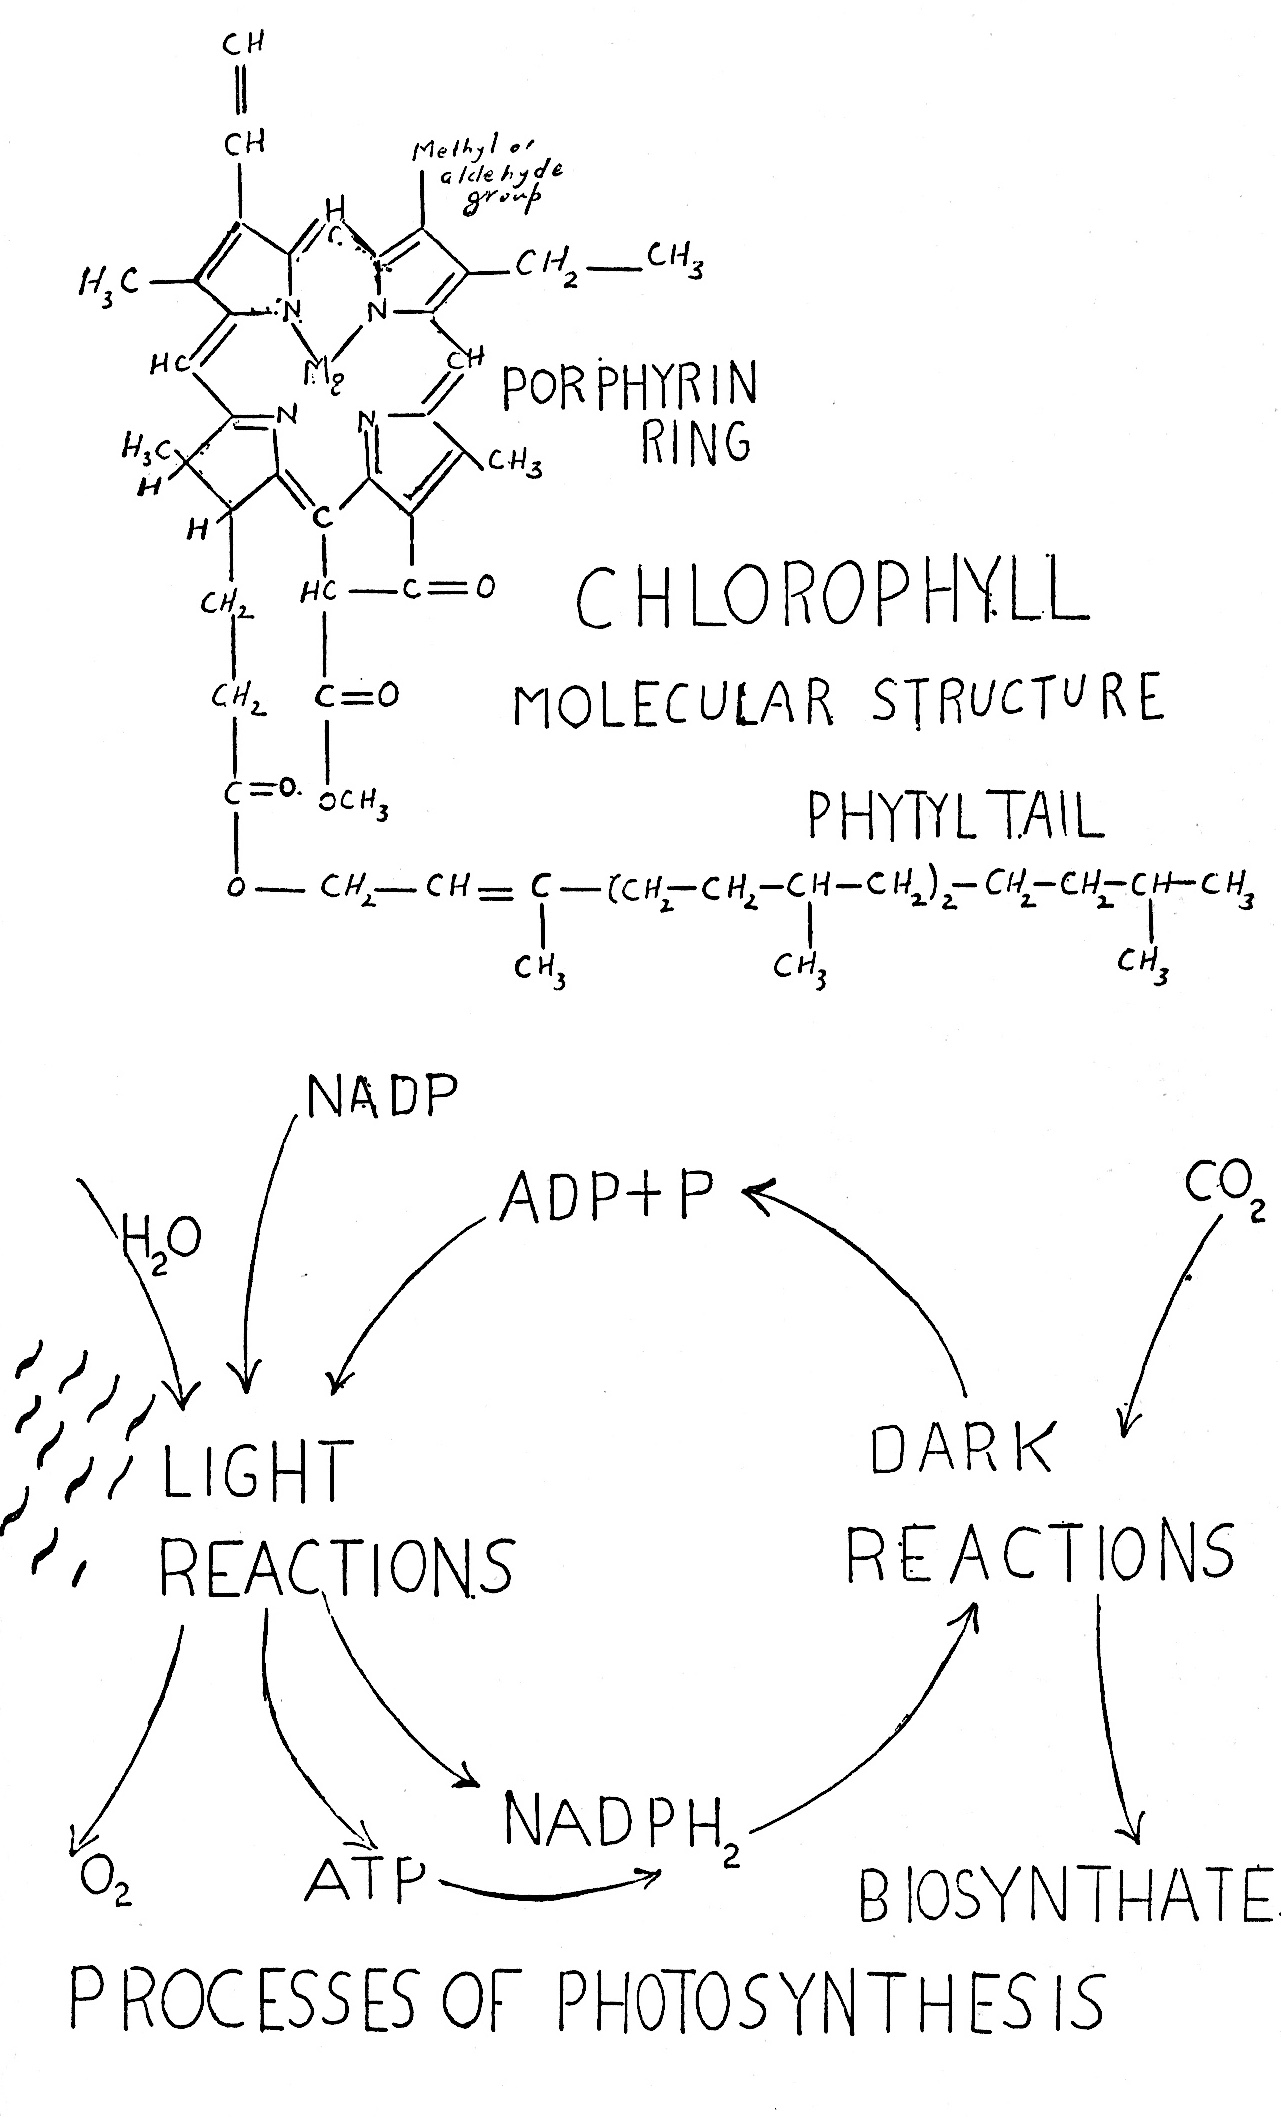 CH
CH
Methyl or
aldehyde
group
H
C
H₃C
CH₂—CH₃
N
N
HC
Mg
CH
PORPHYRIN
RING
N
N
H₃C
H
CH₃
H
C
CH₂
HC—C=O
CHLOROPHYLL
CH₂
C=O
MOLECULAR STRUCTURE
C=O
OCH₃
PHYTYL TAIL
O—CH₂—CH=C—(CH₂—CH₂—CH—CH₂)₂—CH₂—CH₂—CH—CH₃
CH₃
CH₃
CH₃
NADP
ADP+P
CO₂
H₂O
LIGHT
REACTIONS
DARK
REACTIONS
NADPH₂
O₂
ATP
BIOSYNTHATE
PROCESSES OF PHOTOSYNTHESIS